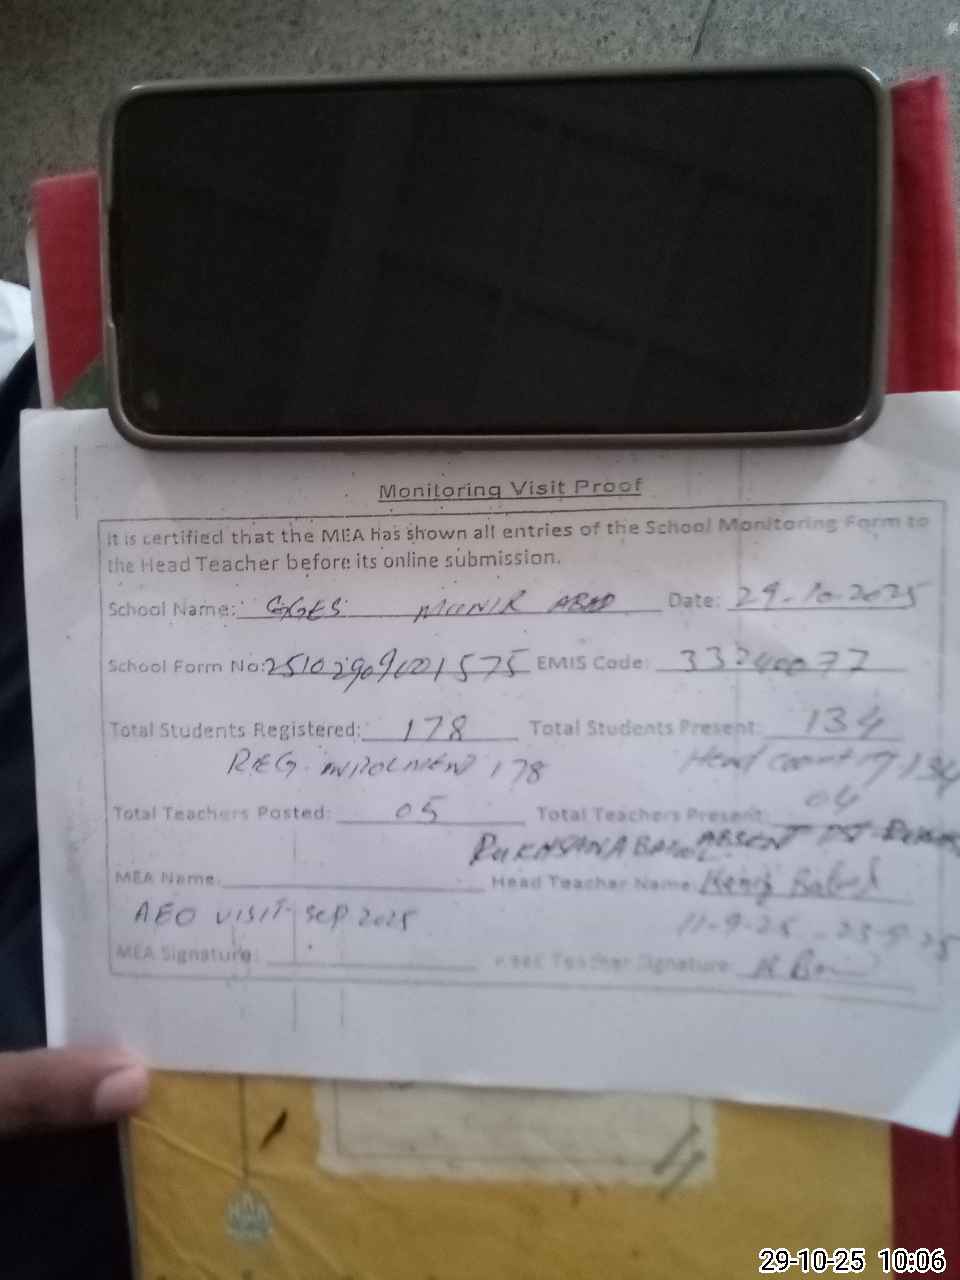 Monitoring Visit Proof
It is certified that the MEA has shown all entries of the School Monitoring Form to
the Head Teacher before its online submission.
School Name: GGES MUNIR ABAD Date: 29-10-2025
School Form No: EMIS Code: 33240077
Total Students Registered: 178 Total Students Present: 134
REG. 178 Head count 134
Total Teachers Posted: 05 Total Teachers Present: 04
ABSENT
MEA Name: Head Teacher Name:
AEO VISIT SEP 2025 11-9-25 23-9-25
MEA Signature: Teacher Signature:
29-10-25 10:06